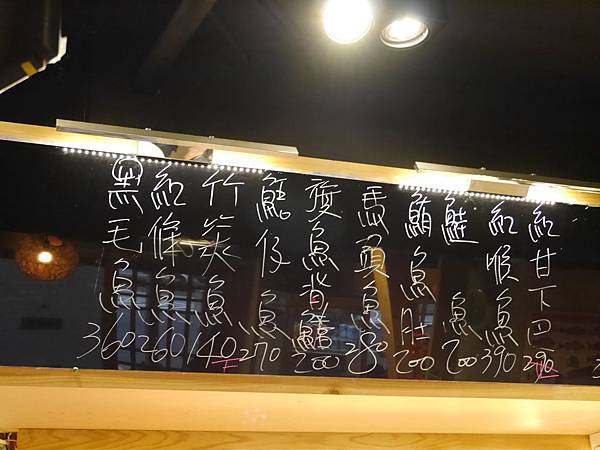 紅甘下巴 290
紅喉魚 390
鮭魚 200
鮪魚肚 200
馬頭魚 280
魚背鰭 200
仔魚 270
竹筴魚 140
紅條魚 260
黑毛魚 360